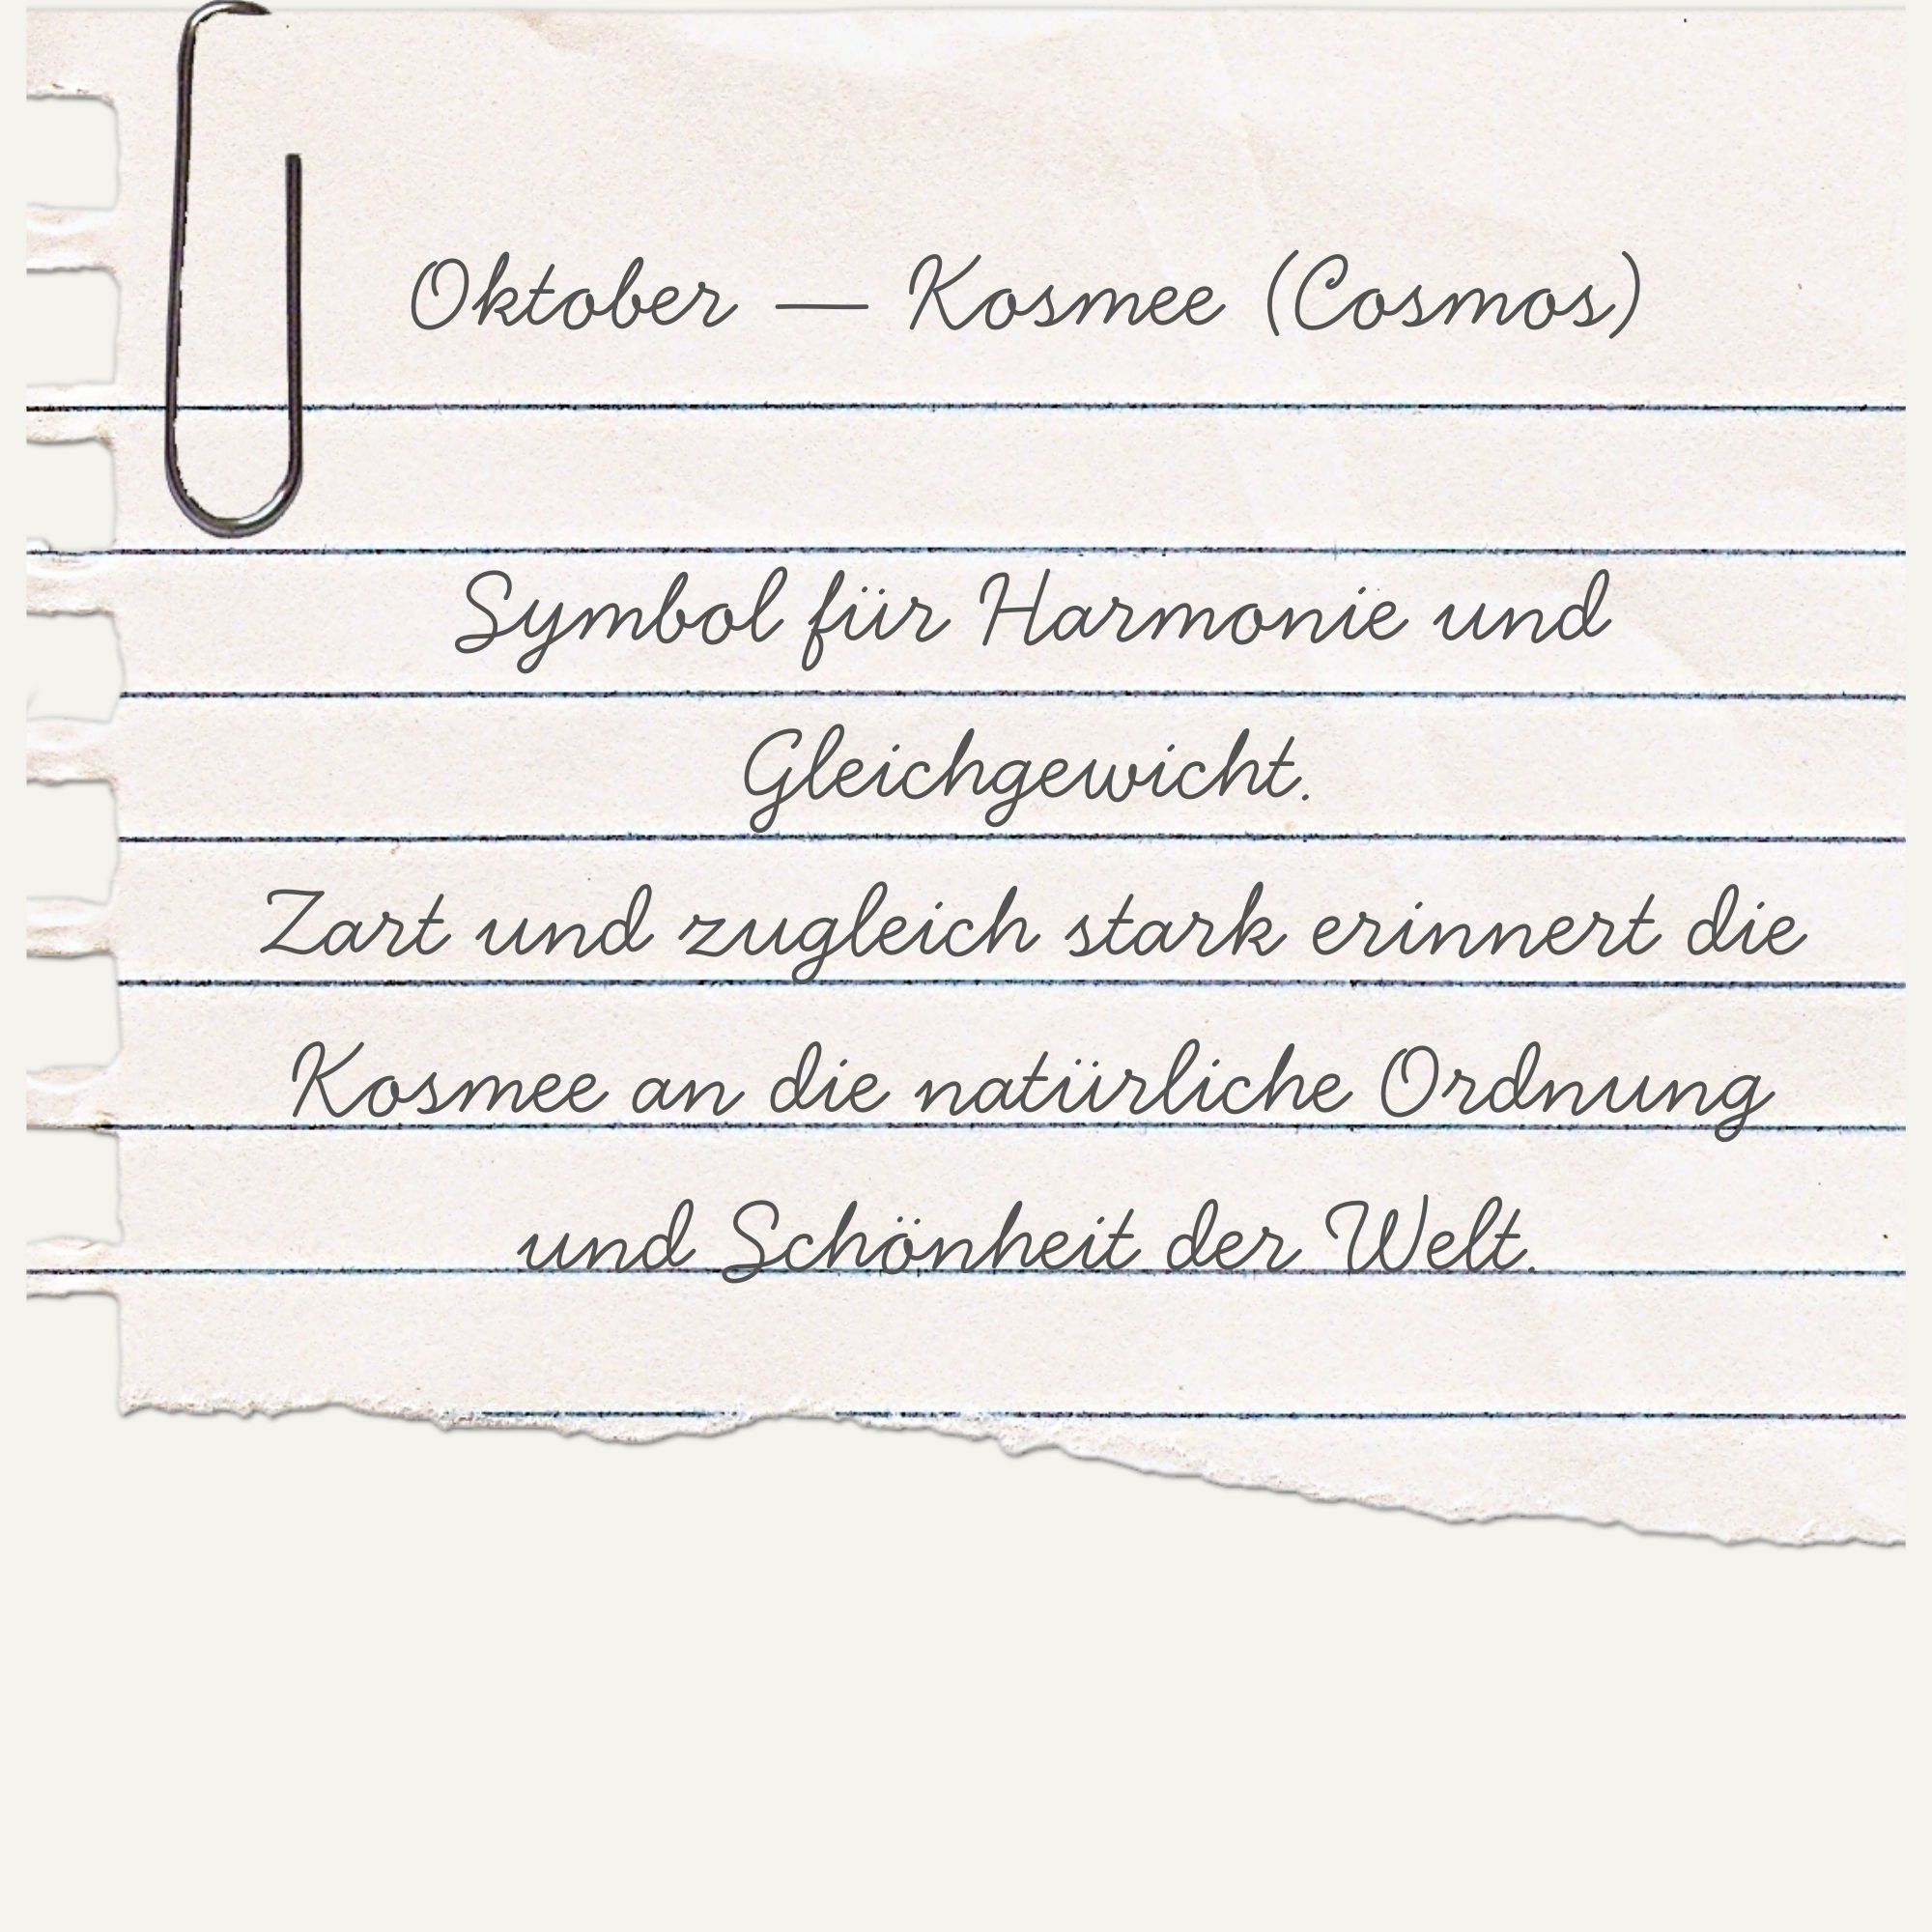 Oktober — Kosmee (Cosmos)
Symbol für Harmonie und
Gleichgewicht.
Zart und zugleich stark erinnert die
Kosmee an die natürliche Ordnung
und Schönheit der Welt.